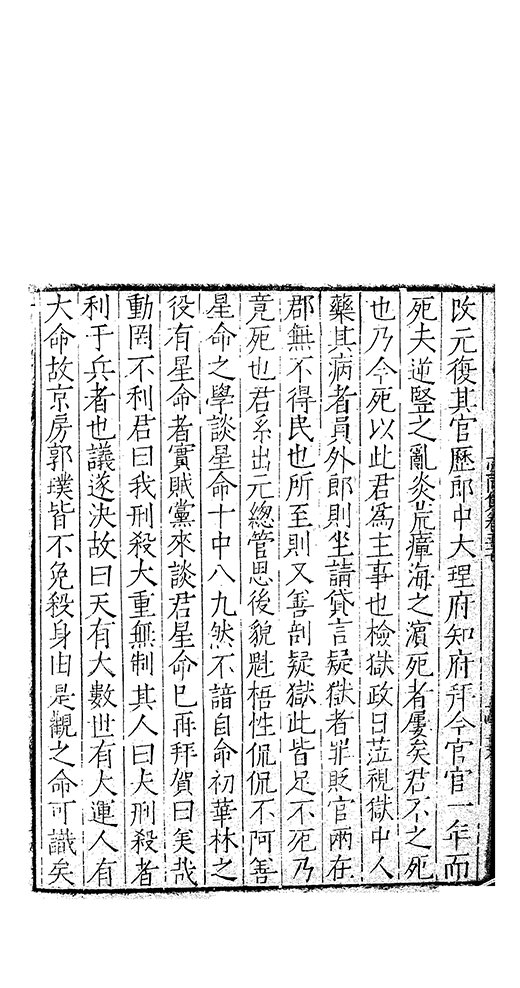 改元復其官歷郎中大理府知府拜今官官一年而
死夫逆豎之亂炎荒瘴海之濵死者屢矣君不之死
也乃今死以此君爲主事也檢獄政日蒞視獄中人
藥其病者員外郎則坐請貸言疑獄者罪貶官兩在
郡無不得民也所至則又善剖疑獄此皆足不死乃
竟死也君系出元總管思後貌魁梧性侃侃不阿善
星命之學談星命十中八九然不諳自命初華林之
役有星命者實賊黨來談君星命已再拜賀曰美哉
動罔不利君曰我刑殺大重無制其人曰夫刑殺者
利于兵者也議遂決故曰天有大數世有大運人有
大命故京房郭璞皆不免殺身由是觀之命可識矣